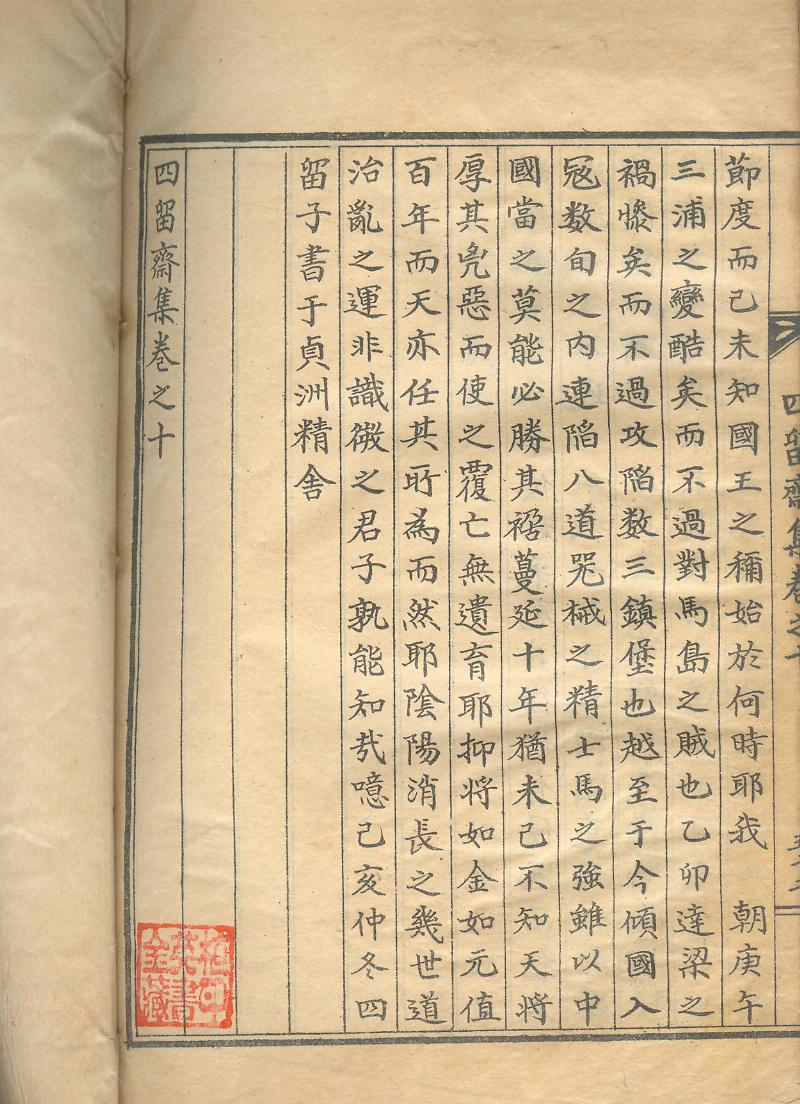 四留齋集卷之十
節度而已未知國王之稱始於何時耶我 朝庚午
三浦之變酷矣而不過對馬島之賊也乙卯達梁之
禍慘矣而不過攻陷数三鎮堡也越至于今傾國入
冦数旬之內連陷八道咒械之精士馬之強雖以中
國當之莫能必勝其裾蔓延十年猶未已不知天將
厚其兇惡而使之覆亡無遺育耶抑將如金如元值
百年而天亦任其所為而然耶陰陽消長之幾世道
治亂之運非識微之君子孰能知㦲噫己亥仲冬四
留子書于貞洲精舍
四留齋集卷之十